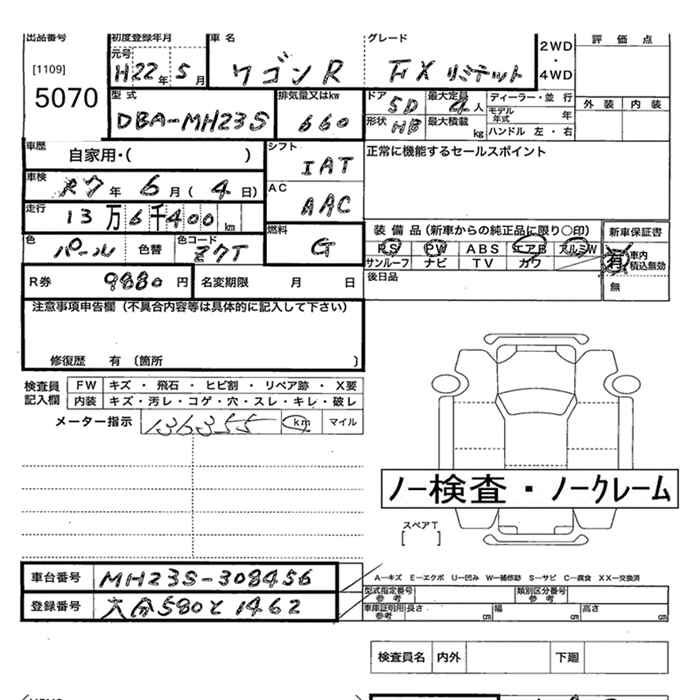 出品番号 初度登録年月 車名 グレード 評価点
元号
[1109] H22年5月 ワゴンR FXリミテッド 2WD・4WD
5070 型式 排気量又はkw ドア 5D 最大定員 4人 ディーラー・並行 外装 内装
DBA-MH23S 660 形状 HB 最大積載 kg モデル年式 年
ハンドル 左・右
車歴 自家用・( ) シフト IAT 正常に機能するセールスポイント
車検 R7年6月(4日) AC AAC
走行 13万6千400km
燃料 G 装備品(新車からの純正品に限り○印) 新車保証書
色 パール 色替 色コード Z7T PS PW ABS エアB アルミW 有 車内積込無効
サンルーフ ナビ TV カワ
R券 9880円 名変期限 月 日 後日品 無
注意事項申告欄(不具合内容等は具体的に記入して下さい)
修復歴 有 〔箇所 〕
検査員記入欄 FW キズ・飛石・ヒビ割・リペア跡・X要
内装 キズ・汚レ・コゲ・穴・スレ・キレ・破レ
メーター指示 136355 km マイル
ノー検査・ノークレーム
スペアT
[ ]
車台番号 MH23S-308456 A―キズ E―エクボ U―凹み W―補修跡 S―サビ C―腐食 XX―交換済
型式指定番号参考 類別区分番号参考
登録番号 大分580と1462 車庫証明用参考 長さ cm 幅 cm 高さ cm
検査員名 内外 下廻